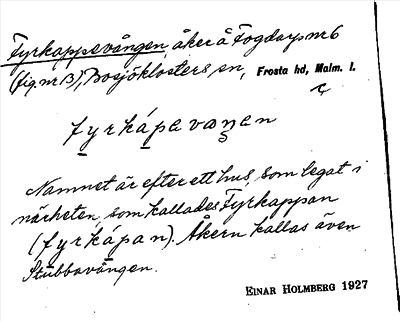 Fyrkappevången, åker å Fogdarp nr 6
(fig. nr 13), Bosjöklosters sn, Frosta hd, Malm. l.
fyrkápavaŋen
Namnet är efter ett hus, som legat i
närheten, som kallades Fyrkappan
(fyrkápan). Åkern kallas även
Stubbavången.
EINAR HOLMBERG 1927